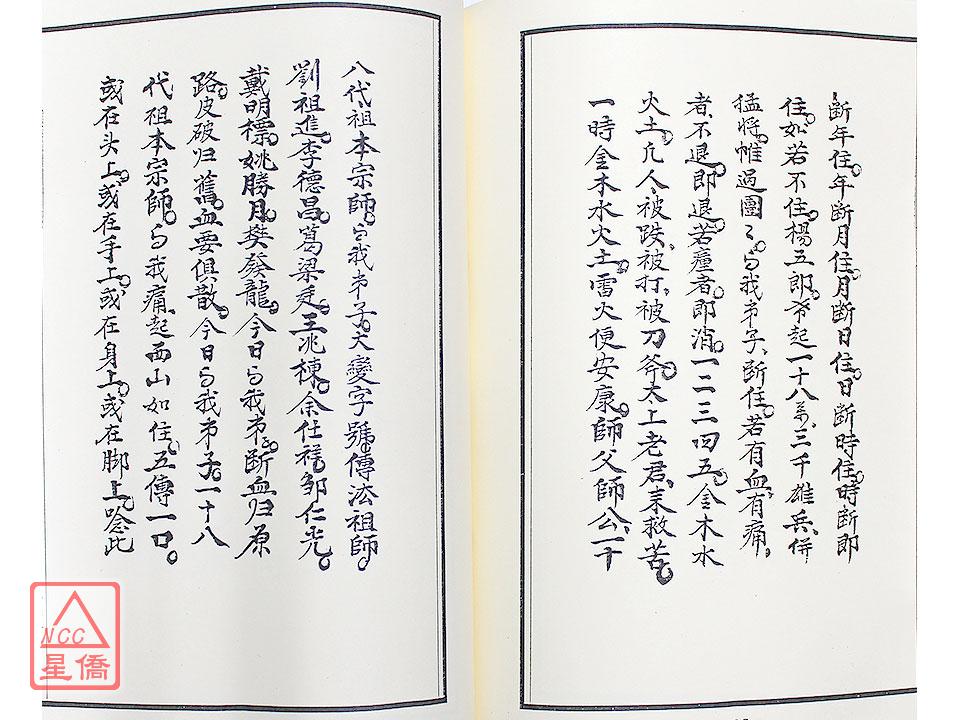 断年住。年断月住。月断日住。日断時住。時断即
住。如若不住。楊五郎。爷起一十八万、三千雄兵、併
猛将。帷過團々。与我弟子、断住。若有血、有痛。
者、不退。即退。若瘴者。即消。一二三四五。金木水
火土。凡人、被跌、被打、被刀斧。太上老君、来救苦。
一時金木水火土。雷火便安康。師父師公、一十
八代、祖本宗師。与我弟子。大變字號、傳法祖師。
劉祖進。李德昌。葛梁廷。王兆棟。余仕祥。邹仁光。
戴明標。姚勝月。樊發龍。今日与我弟、断血归原
路。皮破归舊。血要俱散。今日与我弟子。一十八
代祖本宗師。与我痛、起西山如住。五傳一口。
或在头上。或在手上。或在身上。或在脚上。唸此
NCC
星僑